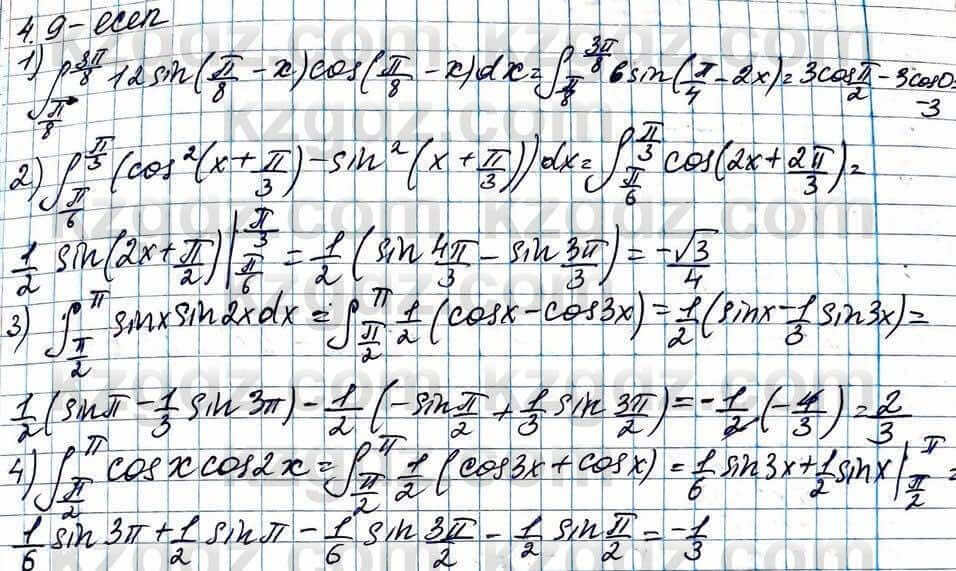 4.9-есеп
1) ∫_{π/8}^{3π/8} 12 sin(π/8 - x) cos(π/8 - x) dx = ∫_{π/8}^{3π/8} 6 sin(π/4 - 2x) = 3cos π/2 - 3cos0 = -3
2) ∫_{π/6}^{π/3} (cos²(x + π/3) - sin²(x + π/3)) dx = ∫_{π/6}^{π/3} cos(2x + 2π/3) =
1/2 sin(2x + π/2) |_{π/6}^{π/3} = 1/2 (sin 4π/3 - sin 3π/3) = -√3/4
3) ∫_{π/2}^{π} sinx sin2x dx = ∫_{π/2}^{π} 1/2 (cosx - cos3x) = 1/2 (sinx - 1/3 sin3x) =
1/2 (sinπ - 1/3 sin3π) - 1/2 (-sin π/2 + 1/3 sin 3π/2) = -1/2 (-4/3) = 2/3
4) ∫_{π/2}^{π} cosx cos2x = ∫_{π/2}^{π} 1/2 (cos3x + cosx) = 1/6 sin3x + 1/2 sinx |_{π/2}^{π} =
1/6 sin3π + 1/2 sinπ - 1/6 sin 3π/2 - 1/2 sin π/2 = -1/3
kzgdz.com